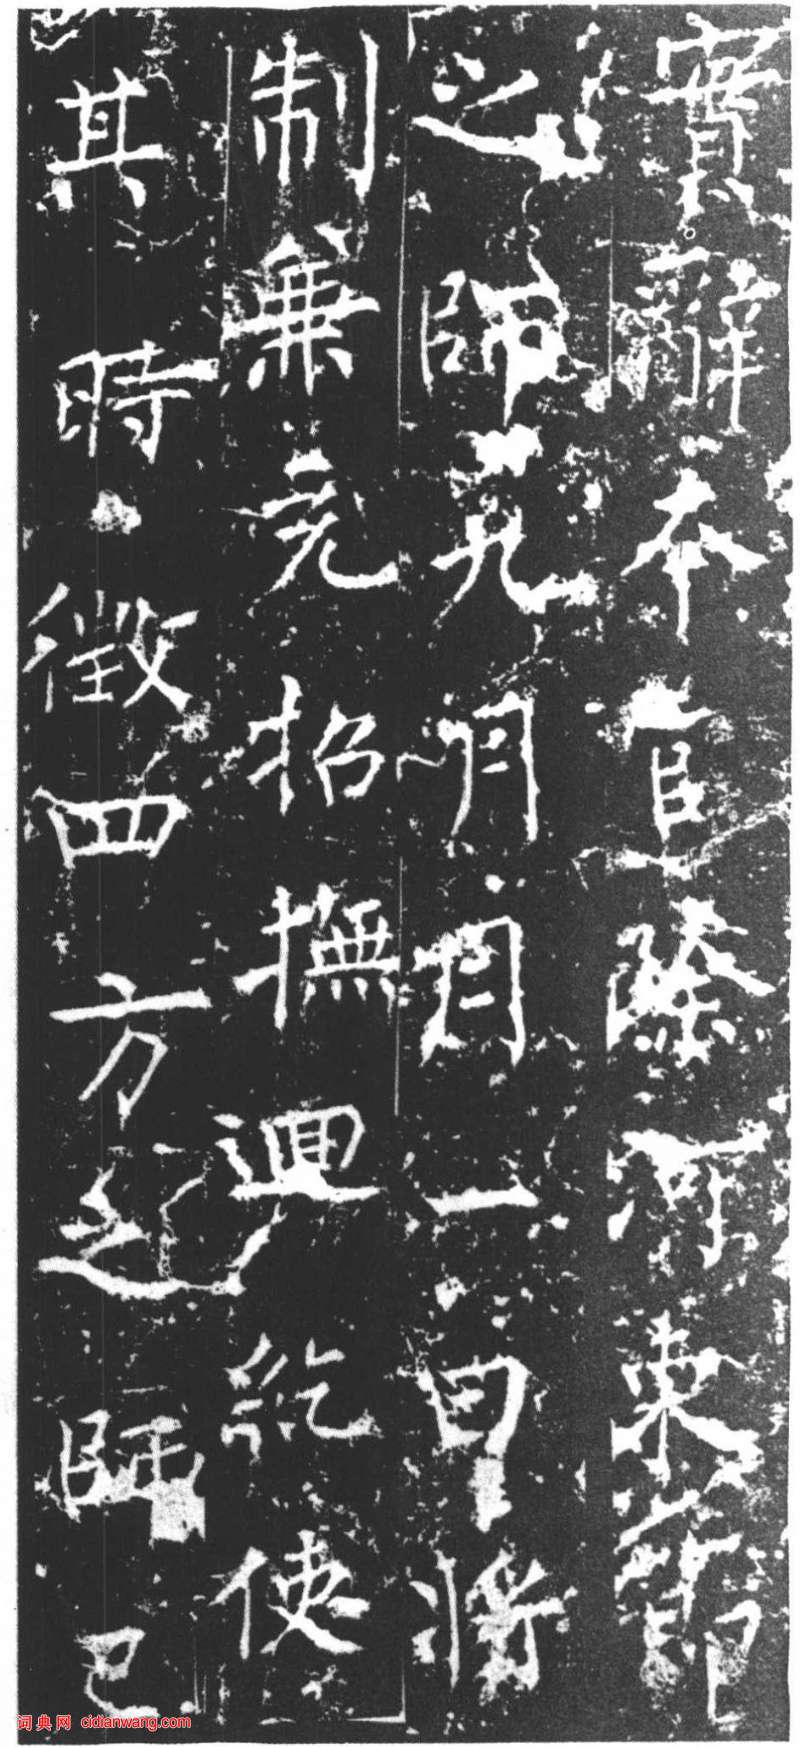 實辭本官除河東節
之師月月一日將
制兼充招撫迴紇使
其時徵四方之師已
词典网 cidianwang.com